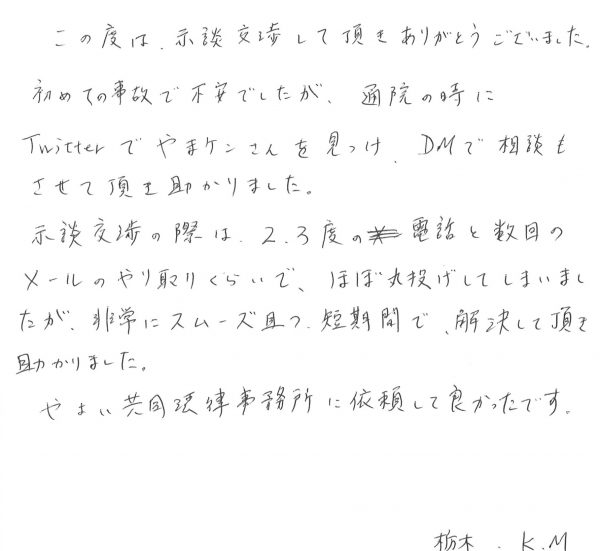 この度は、示談交渉して頂きありがとうございました。
初めての事故で不安でしたが、通院の時に
Twitterでやまケンさんを見つけ、DMで相談も
させて頂き助かりました。
示談交渉の際は、2.3度の電話と数回の
メールのやり取りくらいで、ほぼ丸投げしてしまいまし
たが、非常にスムーズ且つ、短期間で、解決して頂き
助かりました。
やよい共同法律事務所に依頼して良かったです。
栃木、K.M